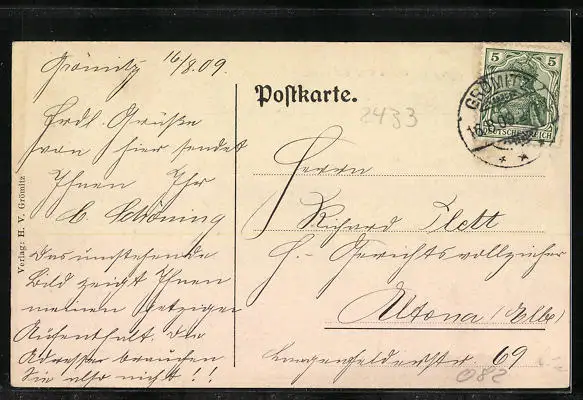 Grömitz 16/8.09.
Frdl. Grüße
von hier sendet
Ihnen Ihr
C. Schöning
Das umstehende
Bild zeigt Ihnen
meinen jetzigen
Aufenthalt. Die
Adresse brauchen
Sie also nicht!!
Verlag: H. V. Grömitz
Postkarte.
2433
5 5
DEUTSCHES REICH
GRÖMITZ
Herrn
Richard Plett
Gerichtsvollzieher
Altona (Elbe)
Langenfelderstr. 69
082